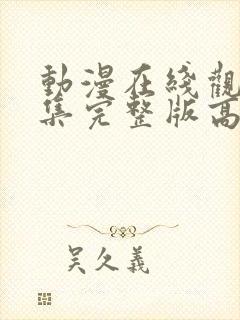 動漫在綫觀
集完整版高
吴久義